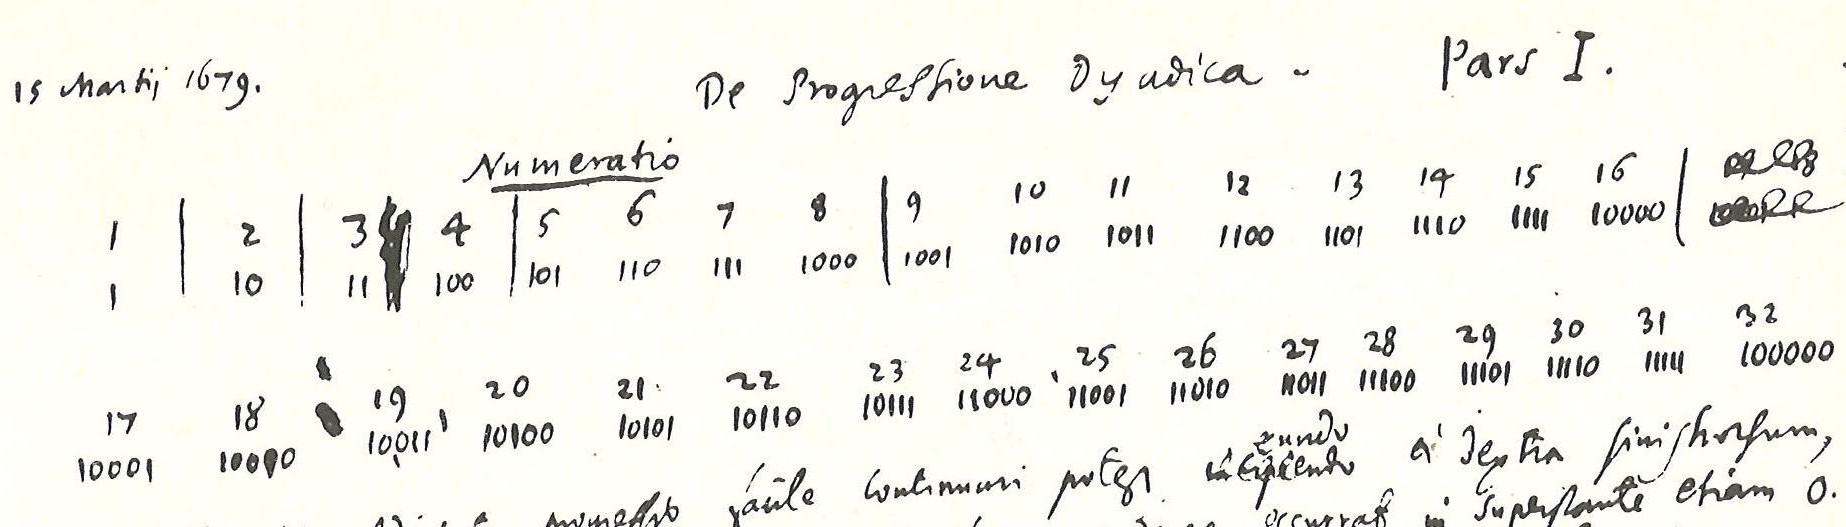 15 Martij 1679. De Progressione Dyadica - Pars I.
Numeratio
1 | 2 | 3 4 | 5 6 7 8 | 9 10 11 12 13 14 15 16 |
1 | 10 | 11 100 | 101 110 111 1000 | 1001 1010 1011 1100 1101 1110 1111 10000 |
17 18 19 20 21 22 23 24 25 26 27 28 29 30 31 32
10001 10010 10011 10100 10101 10110 10111 11000 11001 11010 11011 11100 11101 11110 11111 100000
facile continuari potest à dextra sinistrorsum,
occurrat in superstante etiam 0.